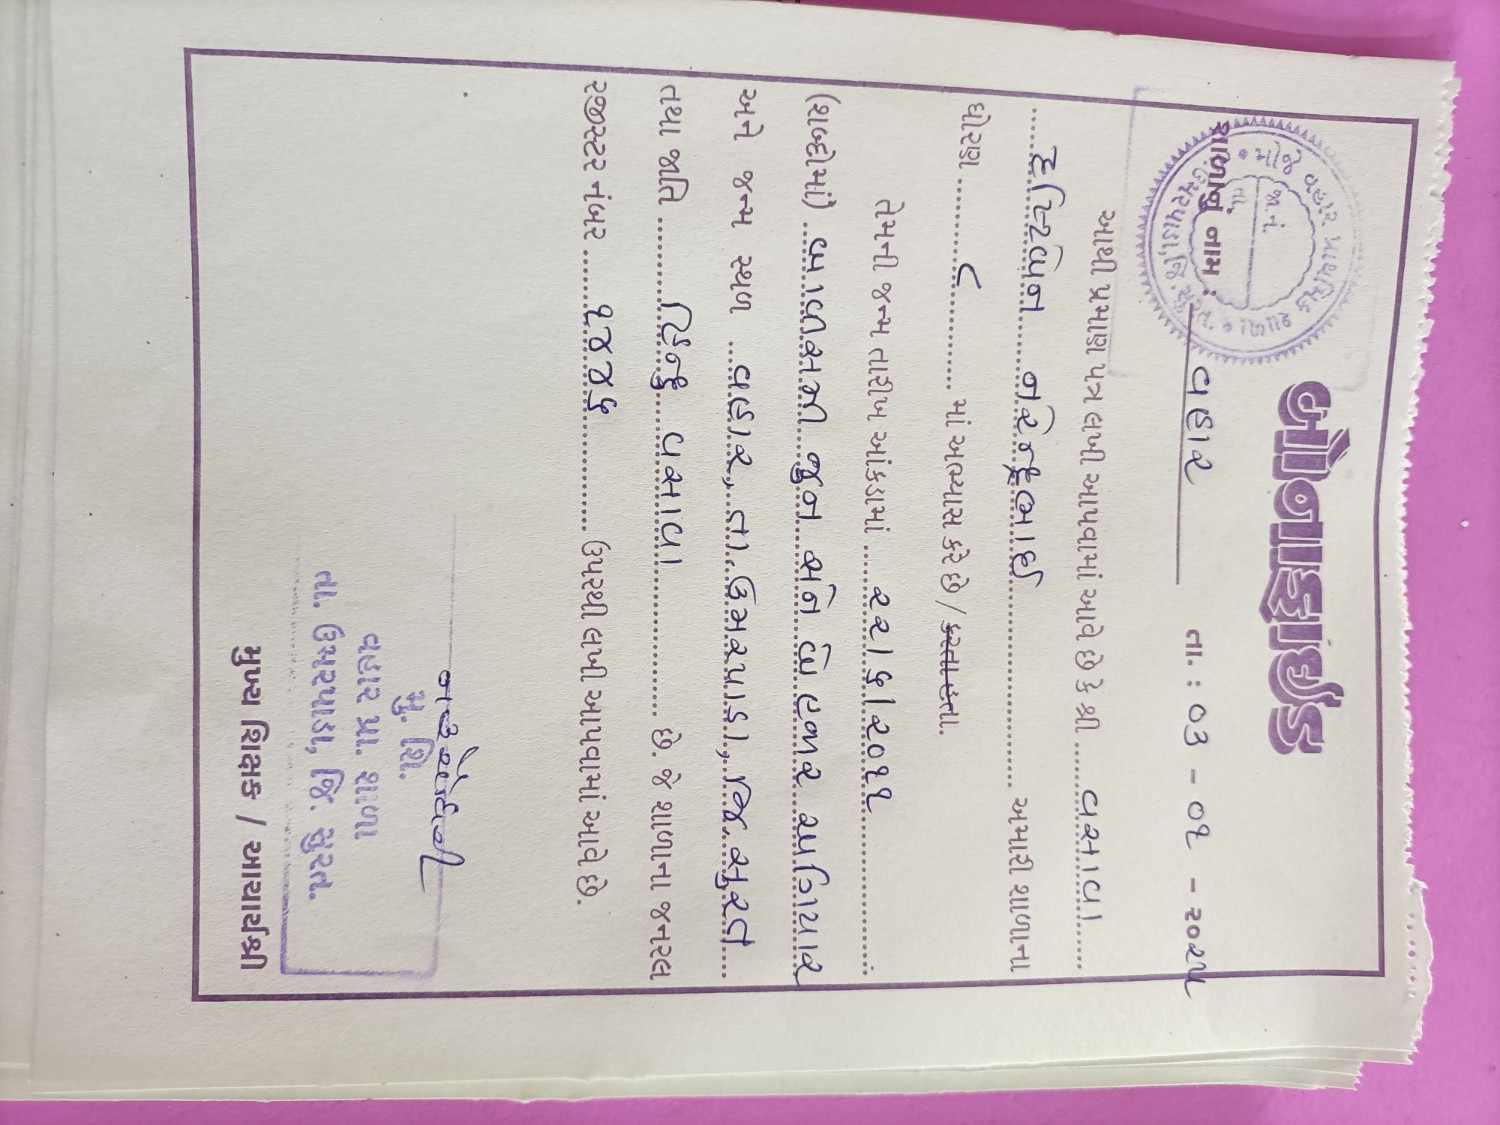 બોનાફાઇડ
શાળાનું નામ : વહાર તા. : 03 - ૦૧ - ૨૦૨૫
આથી પ્રમાણ પત્ર લખી આપવામાં આવે છે કે શ્રી વસાવા
હરિવદન નરેન્દ્રભાઈ અમારી શાળાના
ધોરણ ૮ માં અભ્યાસ કરે છે / કરતા હતા.
તેમની જન્મ તારીખ આંકડામાં ૨૨/૬/૨૦૧૧
(શબ્દોમાં) બાવીસમી જુન સને બે હજાર અગિયાર
અને જન્મ સ્થળ વહાર, તા. ઉમરપાડા, જિ. સુરત
તથા જાતિ હિન્દુ વસાવા છે. જે શાળાના જનરલ
રજીસ્ટર નંબર ૧૭૭૬ ઉપરથી લખી આપવામાં આવે છે.
મુ. શિ.
વહાર પ્રા. શાળા
તા. ઉમરપાડા, જિ. સુરત.
મુખ્ય શિક્ષક / આચાર્યશ્રી
વહાર પ્રાથમિક શાળા
જા.નં.
તા.